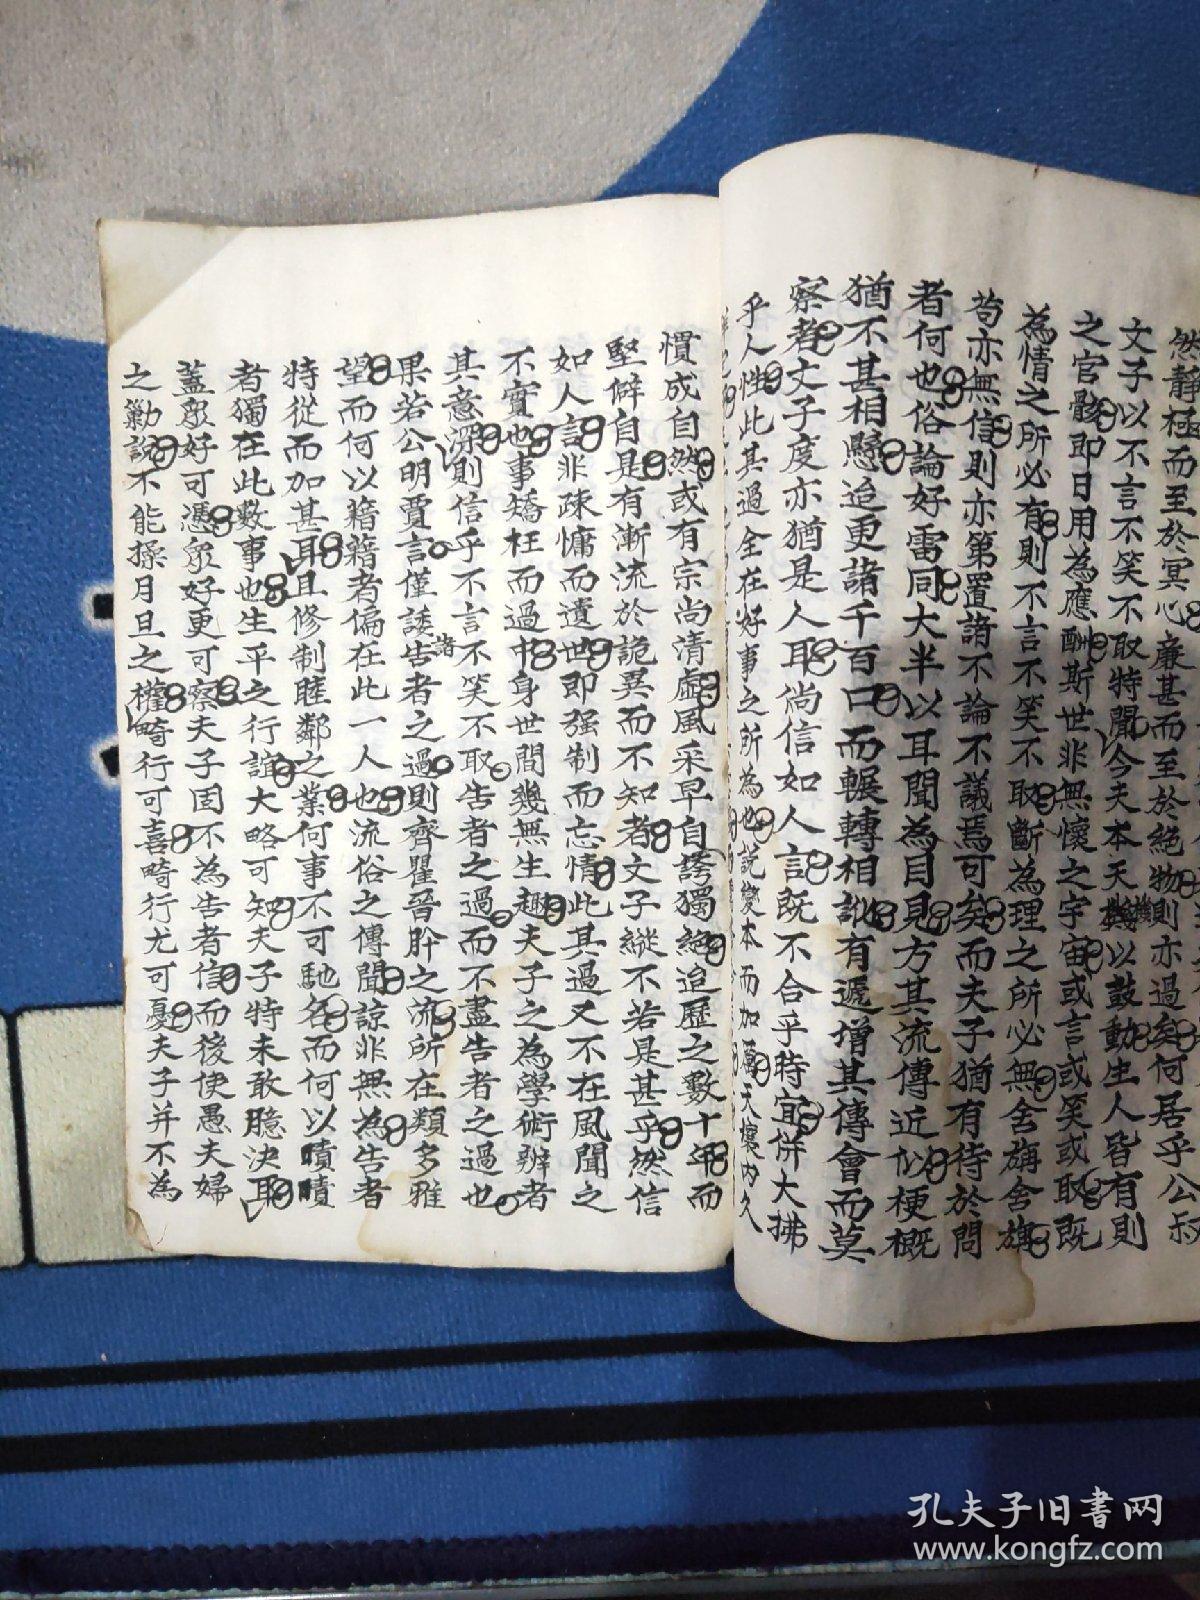 然靜極而至於冥心廉甚而至於絕物則亦過矣何居乎公叔
文子以不言不笑不取特聞今夫本天機以鼓動生人皆有則
之官骸即日用為應酬斯世非無懷之宇宙或言或笑或取既
為情之所必有則不言不笑不取斷為理之所必無舍旃舍旃
苟亦無信則亦第置諸不論不議焉可矣而夫子猶有待於問
者何也俗論好雷同大半以耳聞為目見方其流傳近似梗概
猶不甚相懸迨更諸千百口而輾轉相訛有遞增其傳會而莫
察者文子度亦猶是人耳尚信如人言既不合乎時宜併大拂
乎人性此其過全在好事之所為也説變本而加厲天壤內久
慣成自然或有宗尚清虛風采早自誇獨絕迨歷之數十年而
堅僻自是有漸流於詭異而不知者文子縱不若是甚乎然信
如人言非疎慵而遺世即强制而忘情此其過又不在風聞之
不實也事矯枉而過中身世間幾無生趣夫子之為學術辦者
其意深則信乎不言不笑不取告者之過而不盡告者之過也
果若公明賈言僅諉告者之過則齊瞿晉肸之流所在類多雅
諸
望而何以籍籍者偏在此一人也流俗之傳聞諒非無為告者
特從而加甚耳且修制睦鄰之業何事不可馳名而何以嘖嘖
者獨在此數事也生平之行誼大略可知夫子特未敢臆決耶
蓋衆好可憑衆好更可察夫子固不為告者信而後使愚夫婦
之勦説不能操月旦之權畸行可喜畸行尤可憂夫子并不為
孔夫子旧书网
www.kongfz.com